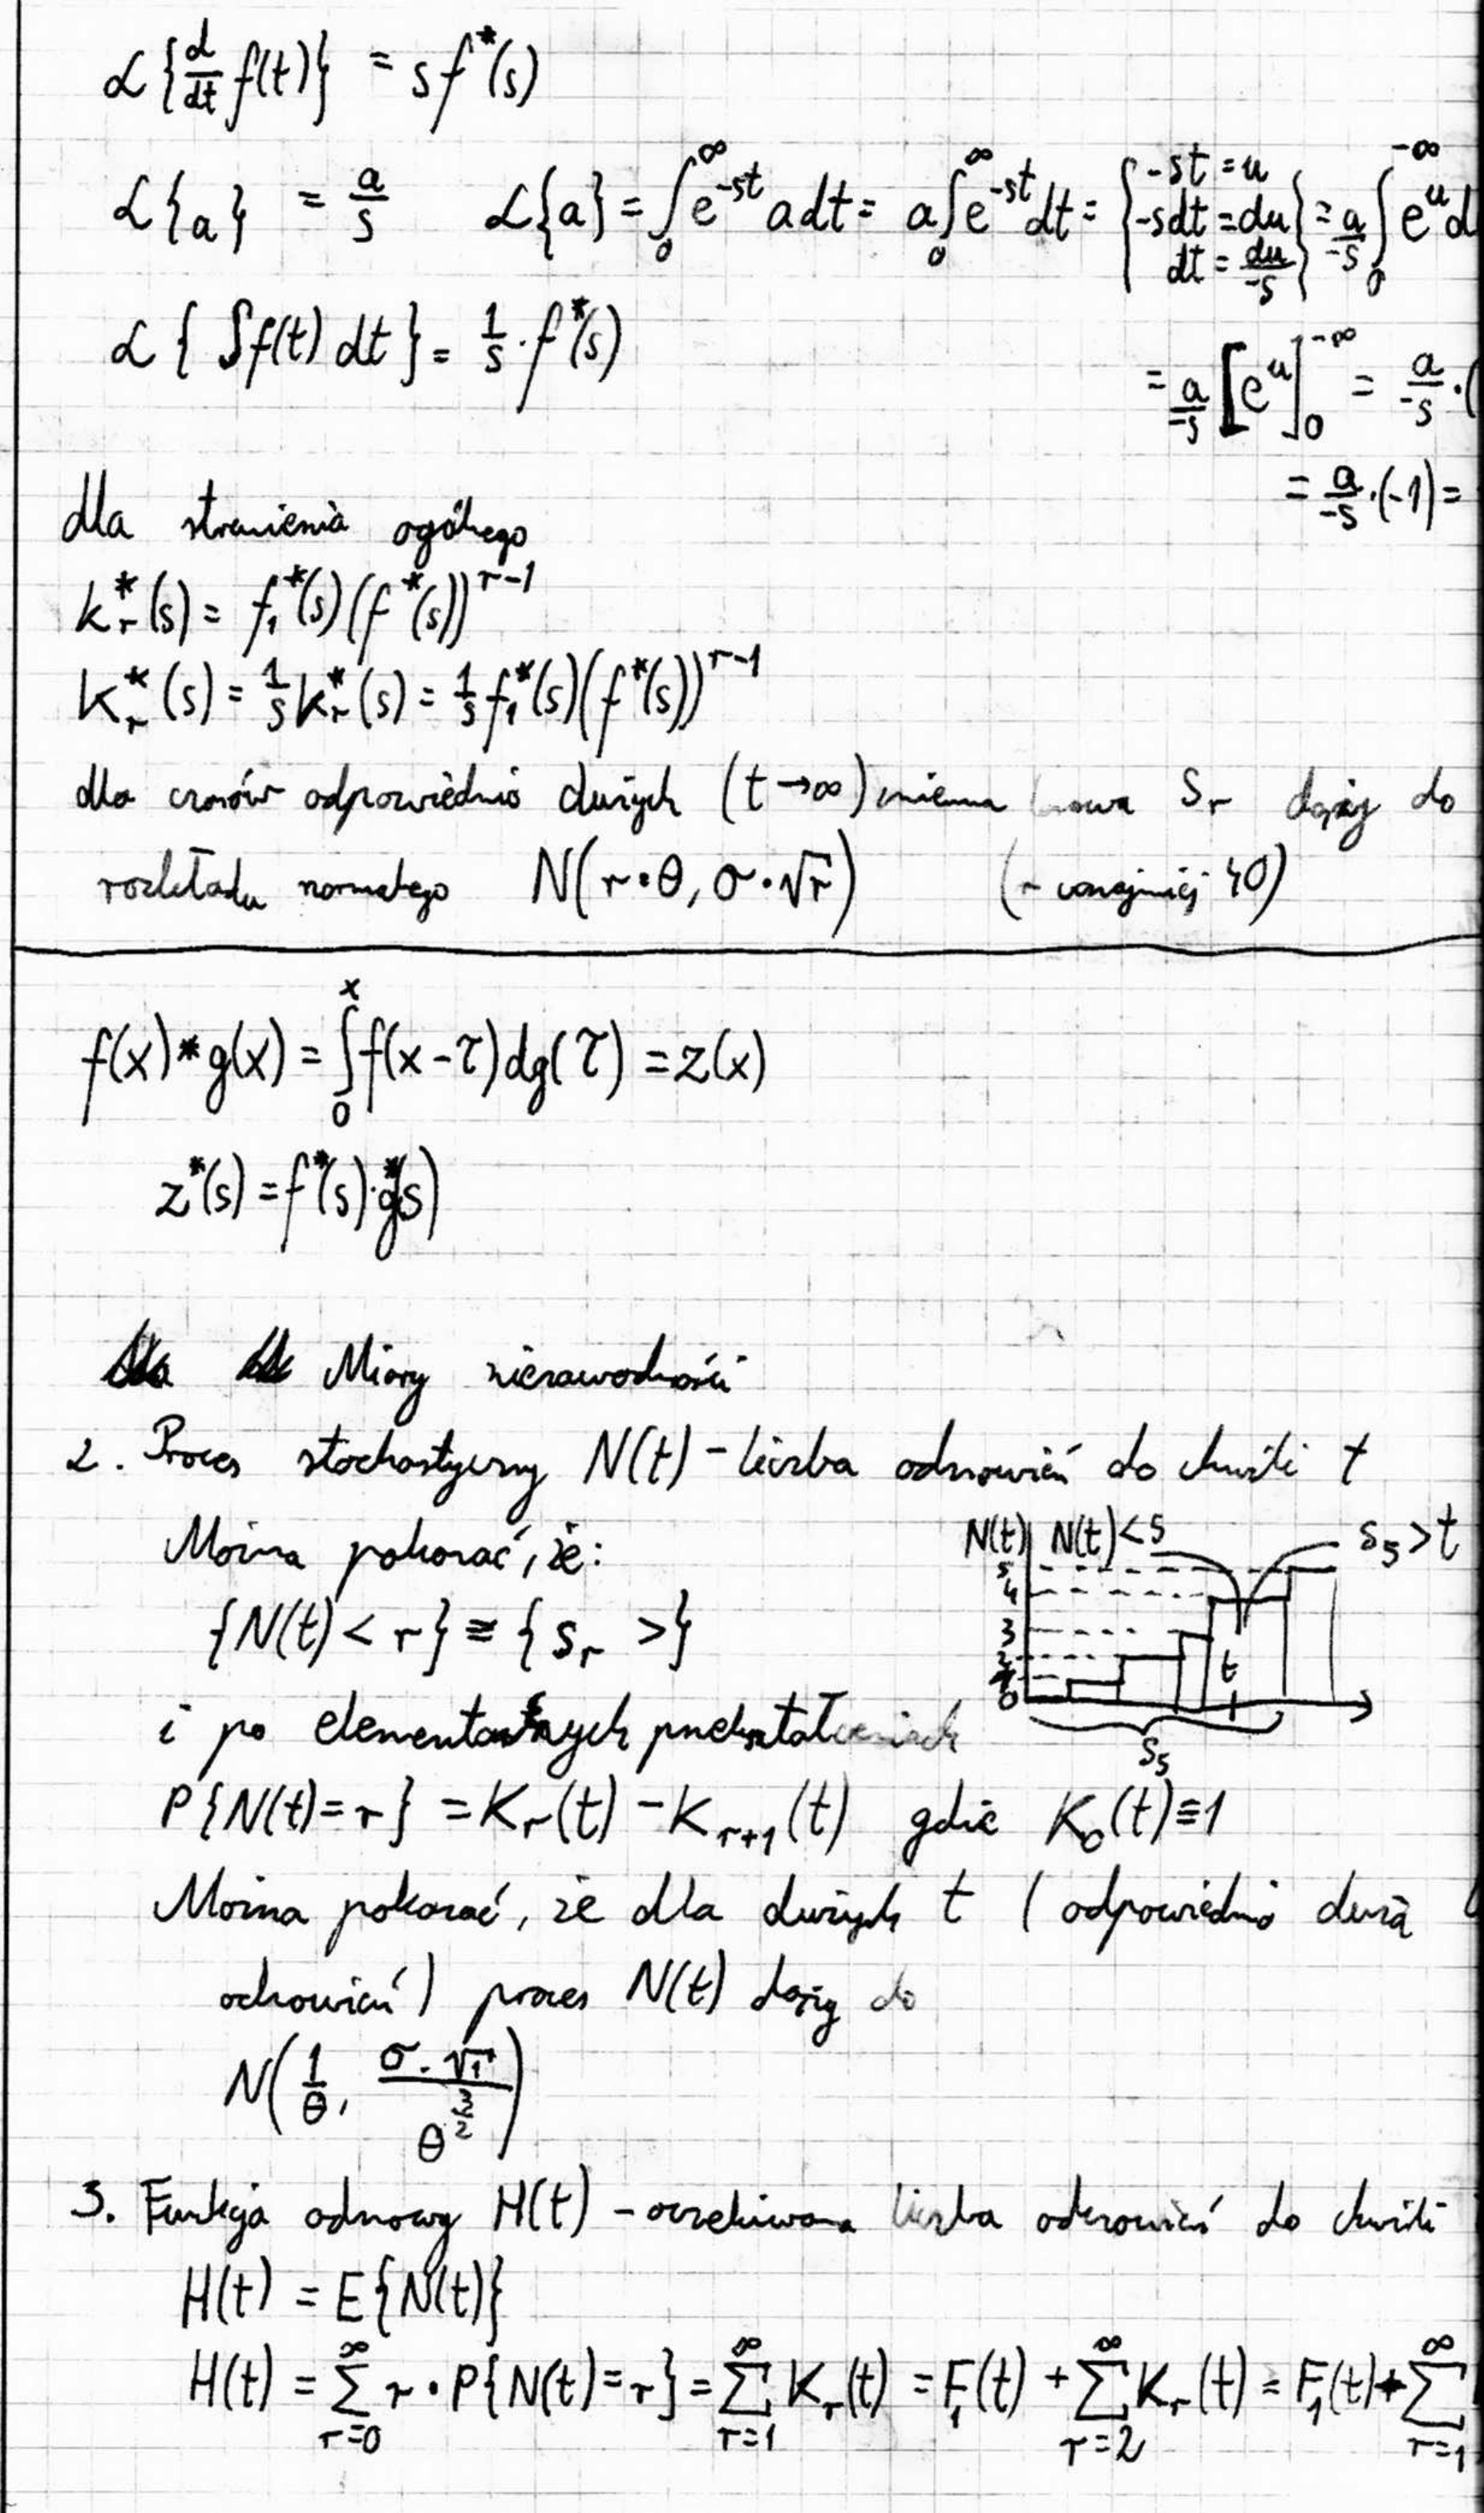 ℒ{d/dt f(t)} = s f*(s)
ℒ{a} = a/s   ℒ{a} = ∫₀^∞ e^(-st) a dt = a ∫₀^∞ e^(-st) dt = { -st = u   -s dt = du   dt = du/-s } = a/-s ∫₀^(-∞) e^u d
ℒ{ ∫f(t) dt } = 1/s · f*(s)
= a/-s [e^u]₀^(-∞) = a/-s · (
= a/-s · (-1) =
dla strumienia ogólnego
k_r*(s) = f₁*(s)(f*(s))^(r-1)
K_r*(s) = 1/s k_r*(s) = 1/s f₁*(s)(f*(s))^(r-1)
dla czasów odpowiednio dużych (t→∞) zmienna losowa S_r dąży do
rozkładu normalnego N(r·θ, σ·√r) (r conajmniej 40)
f(x)*g(x) = ∫₀^x f(x-τ)dg(τ) = z(x)
z*(s) = f*(s)·g*(s)
Miary niezawodności
2. Proces stochastyczny N(t) - liczba odnowień do chwili t
Można pokazać, że:
{N(t) < r} ≡ { S_r >}
N(t) N(t)<5 S₅>t
5
4
3
2
1
0
t
S₅
i po elementarnych przekształceniach
P{N(t)=r} = K_r(t) - K_(r+1)(t) gdzie K₀(t)≡1
Można pokazać, że dla dużych t (odpowiednio duża
odnowień) proces N(t) dąży do
N(1/θ, σ·√t/θ^(3/2))
3. Funkcja odnowy H(t) - oczekiwana liczba odnowień do chwili
H(t) = E{N(t)}
H(t) = ∑_(r=0)^∞ r · P{N(t)=r} = ∑_(r=1)^∞ K_r(t) = F₁(t) + ∑_(r=2)^∞ K_r(t) = F₁(t) + ∑_(r=1)^∞